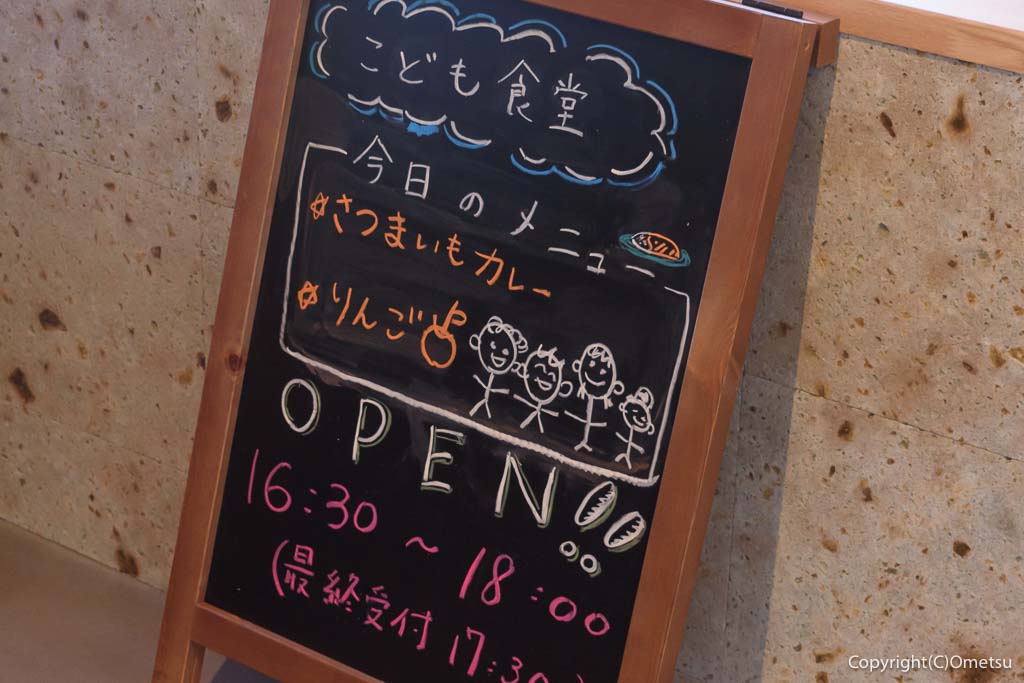 こども食堂
今日のメニュー
☆さつまいもカレー
☆りんご
OPEN!!
16:30 ~ 18:00
(最終受付 17:30)
Copyright(C)Ometsu